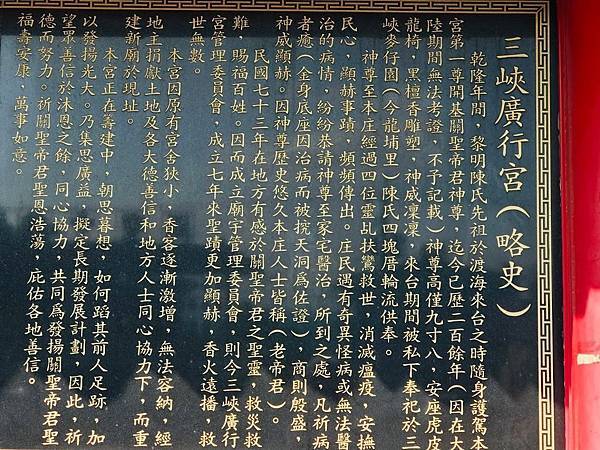 三峽廣行宮（略史）
乾隆年間，黎明陳氏先祖於渡海來台之時隨身護駕本
宮第一尊開基關聖帝君神尊，迄今已歷二百餘年（因在大
陸期間無法考證，不予記載）神尊高僅九寸八，安座虎皮
龍椅，黑檀香雕塑，神威凜凜，來台期間被私下奉祀於三
峽麥仔園（今龍埔里）陳氏四塊厝輪流供奉。
神尊至本庄經過四位靈乩扶鸞救世，消滅瘟疫，安撫
民心，顯赫事蹟，頻頻傳出。庄民遇有奇異怪病或無法醫
治的病情，紛紛恭請神尊至家宅醫治，所到之處，凡祈病
者癒（金身底座因治病而被挖天洞爲佐證）商則殷盛，
神威顯赫。因神尊歷史悠久本庄人士皆稱（老帝君）。
民國七十三年在地方有感於關聖帝君之聖靈，救災救
難，賜福百姓。因而成立廟宇管理委員會，則今三峽廣行
宮管理委員會，成立七年來聖蹟更加顯赫，香火遠播，救
世無數。
本宮因原有宮舍狹小，香客逐漸激增，無法容納，經
地主捐獻土地及各大德善信和地方人士同心協力下，而重
建新廟於現址。
本宮正在籌建中，朝思暮想，如何蹈其前人足跡，加
以發揚光大。乃集思廣益，擬定長期發展計劃，因此，祈
望眾善信於沐恩之餘，同心協力，共同爲發揚關聖帝君聖
德而努力。祈關聖帝君聖恩浩蕩，庇佑各地善信。
福壽安康，萬事如意。